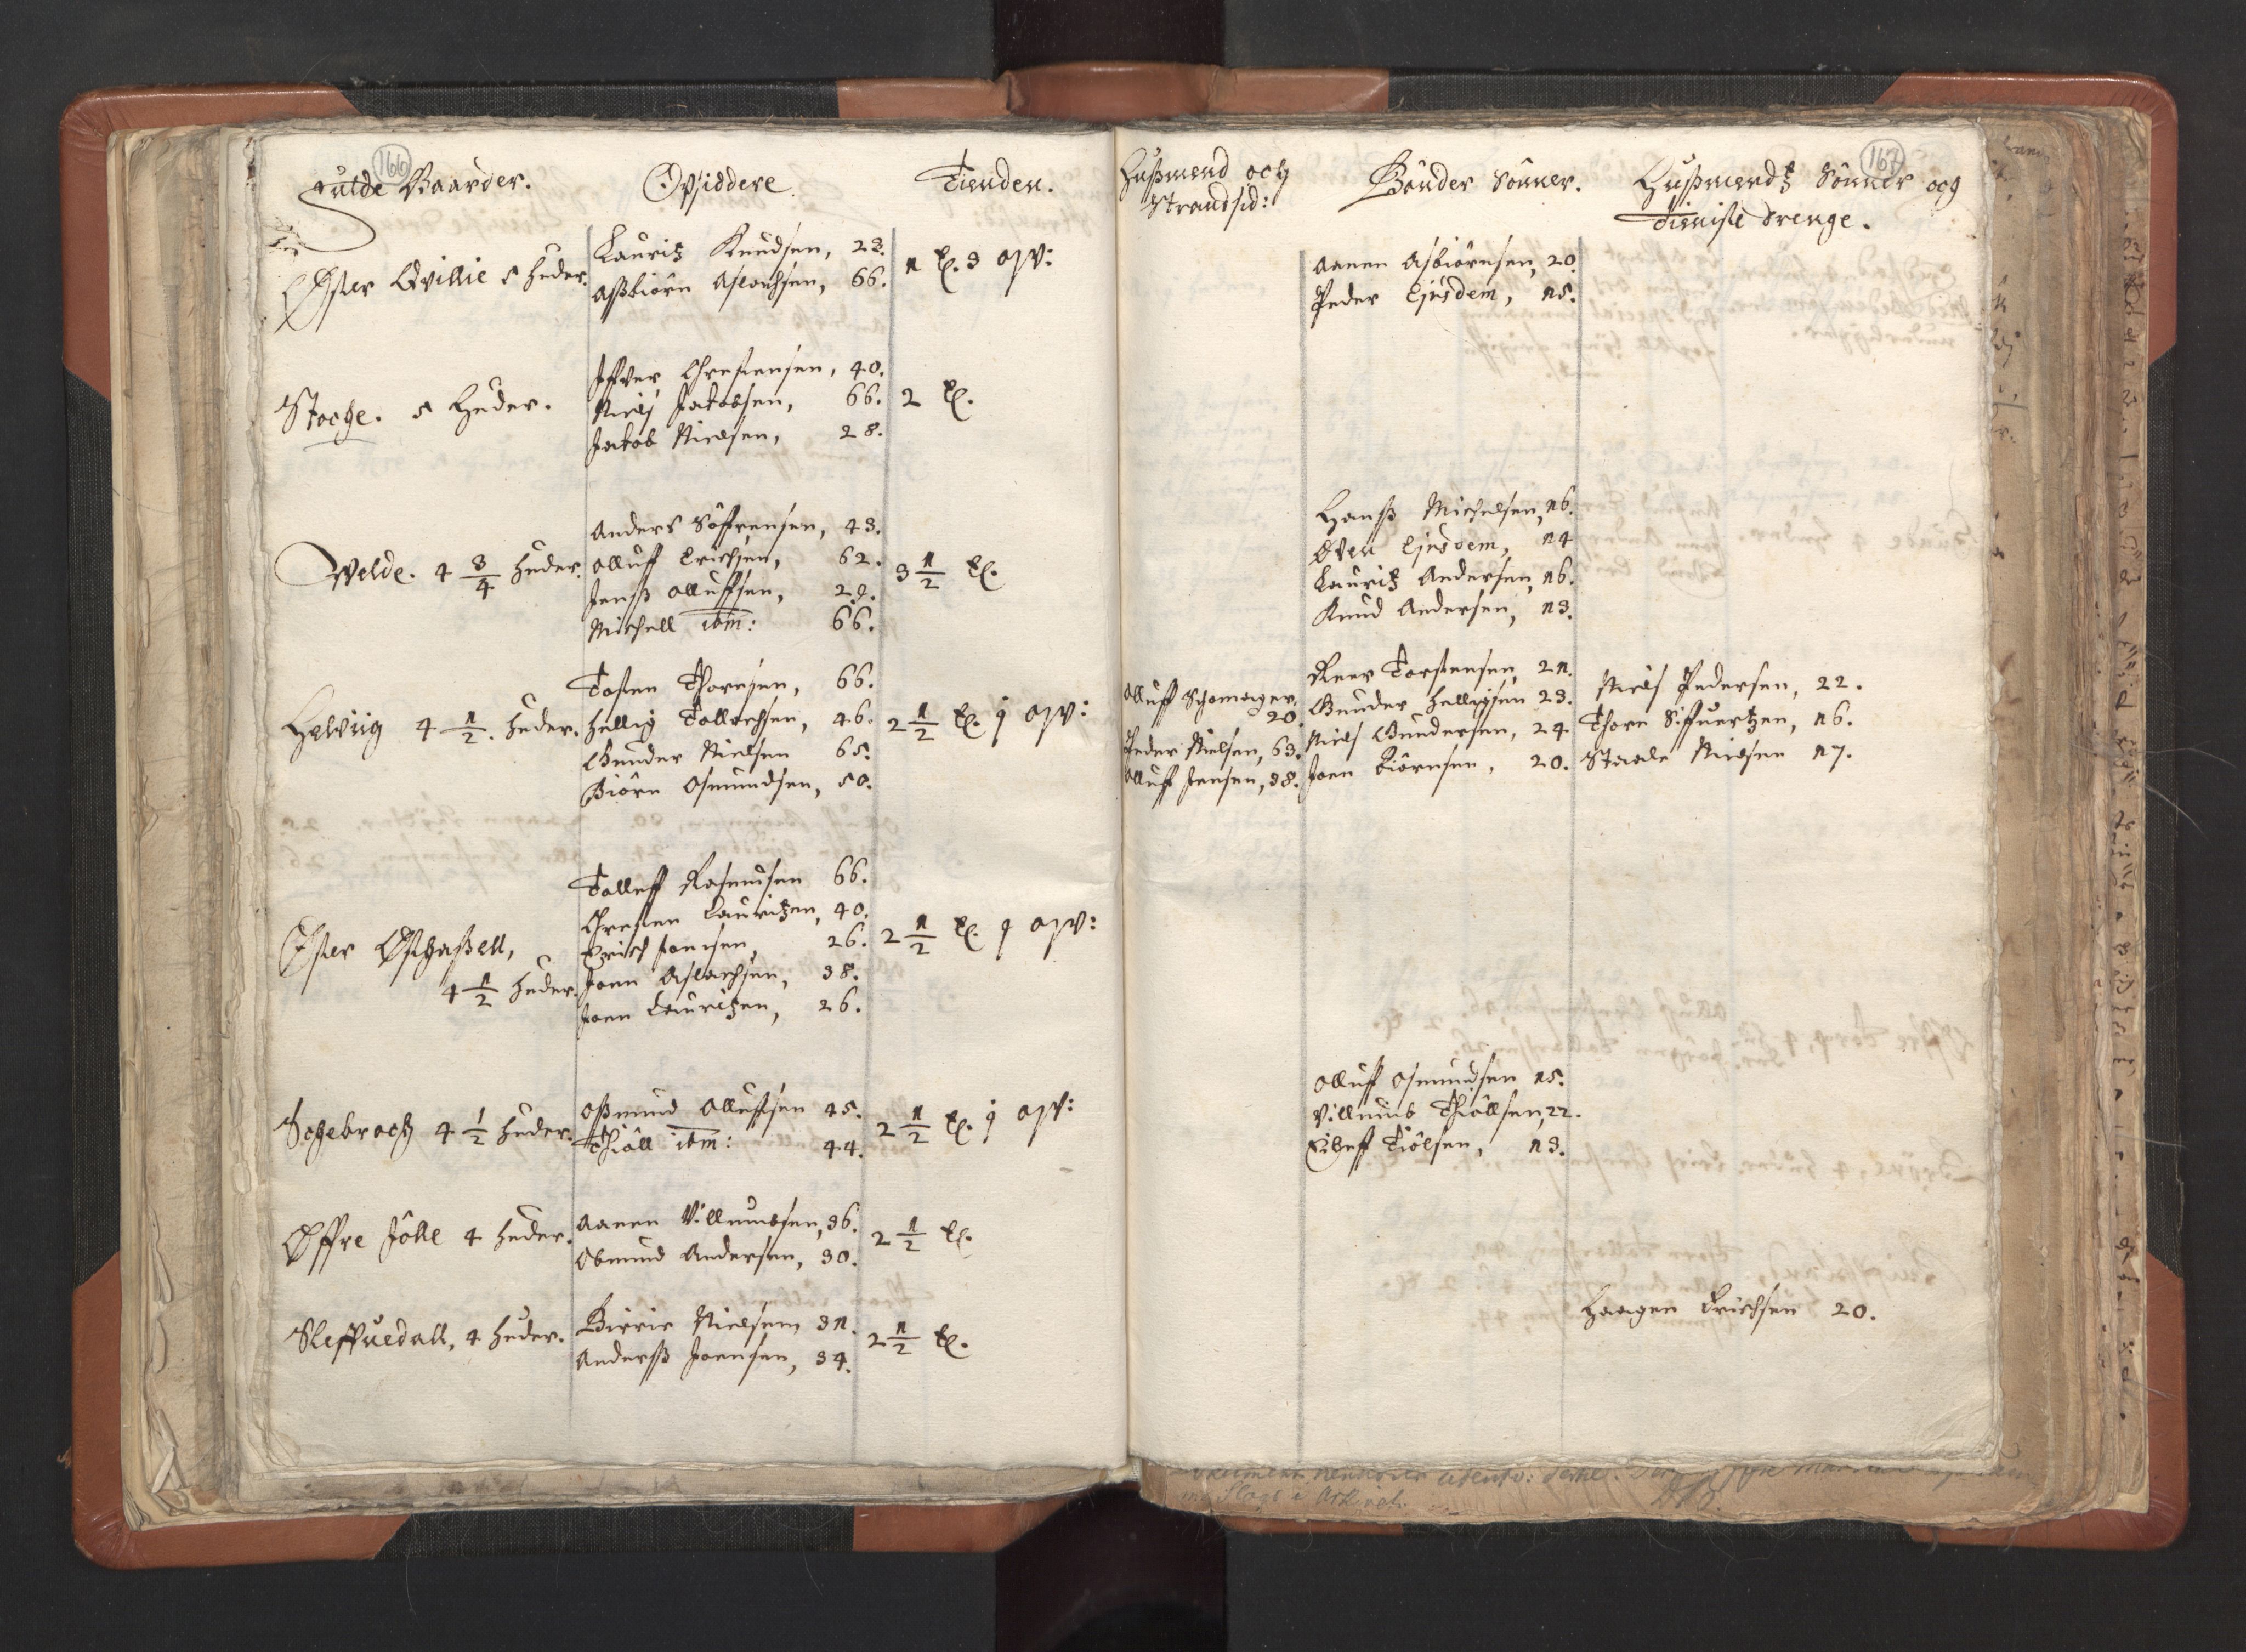 166
fulde Gaarder.
Opsiddere.
Tienden.
Øster Qvillie 5 huder.
Lauritz Knudsen, 23.
Assbiörn Aslachsen, 66.
1 t. 3 opv:
Stoche. 5 Huder.
Iffver Chrestensen, 40.
Niels Jakobsen, 66.
Jakob Nielsen, 28.
2 t.
Welde. 4 3/4 huder.
Anders Söffrensen, 43.
Olluff Erichsen, 62.
Jenss Olluffsen, 29.
Michell ibm: 66.
3 1/2 t.
Helviig 4 1/2. huder.
Tosten Thoresen, 66.
Hellig Tollachsen, 46.
Gunder Nielsen 65.
Biörn Osmundsen, 50.
2 1/2 t. j opv:
Øster Østhassell,
4 1/2 huder.
Talleff Rasmusen 66.
Chresten Lauritzen, 40.
Erich Joensen, 26.
Joen Aslachsen, 38.
Joen Lauritzen, 26.
2 1/2 t. j opv:
Schebroch 4 1/2 huder.
Ossmund Olluffsen 45.
Thiöll ibm: 44.
2 1/2 t. j opv:
Øffre Jölle 4 huder.
Aanen Villumsen, 36.
Obmund Andersen, 30.
2 1/2 t.
Sleffuedall, 4 huder.
Birrie Nielsen, 31.
Anderss Joensen, 34.
2 1/2 t.
167
Hussmend och
Strandsid:
Bönder Sönner.
Hussmendtz Sönner og
Tieniste drenge.
Aanen Asbiörnsen, 20.
Peder Ejusdem, 15.
Hanss Michelsen, 16.
Oven Ejusdem, 14
Lauritz Andersen, 16.
Knud Andersen, 13.
Olluff Schomager,
20.
Peder Nielsen, 63.
Olluff Jensen, 38.
Reer Torstensen, 21.
Gunder Helligsen 23.
Niels Gundersen, 24.
Joen Biörnsen, 20.
Niels Pedersen, 22.
Thore Siffuertzen, 16.
Staale Nielsen 17.
Olluff Osmundsen 15.
Villumb Thiöllsen, 22.
Eileff Tiölsen, 13.
Haagen Erichsen 20.